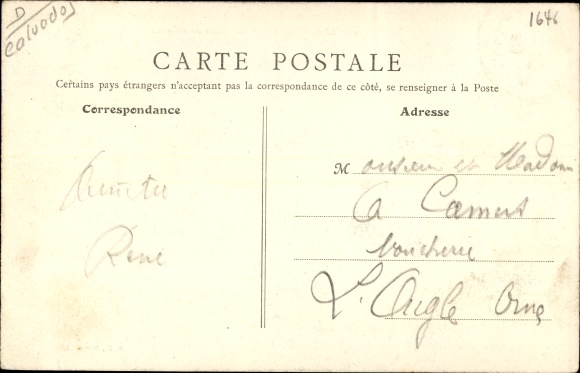 D
Calvados
1646
CARTE POSTALE
Certains pays étrangers n'acceptant pas la correspondance de ce côté, se renseigner à la Poste
Correspondance
Adresse
Monsieur et Madame
René
boucherie
L'Aigle Orne